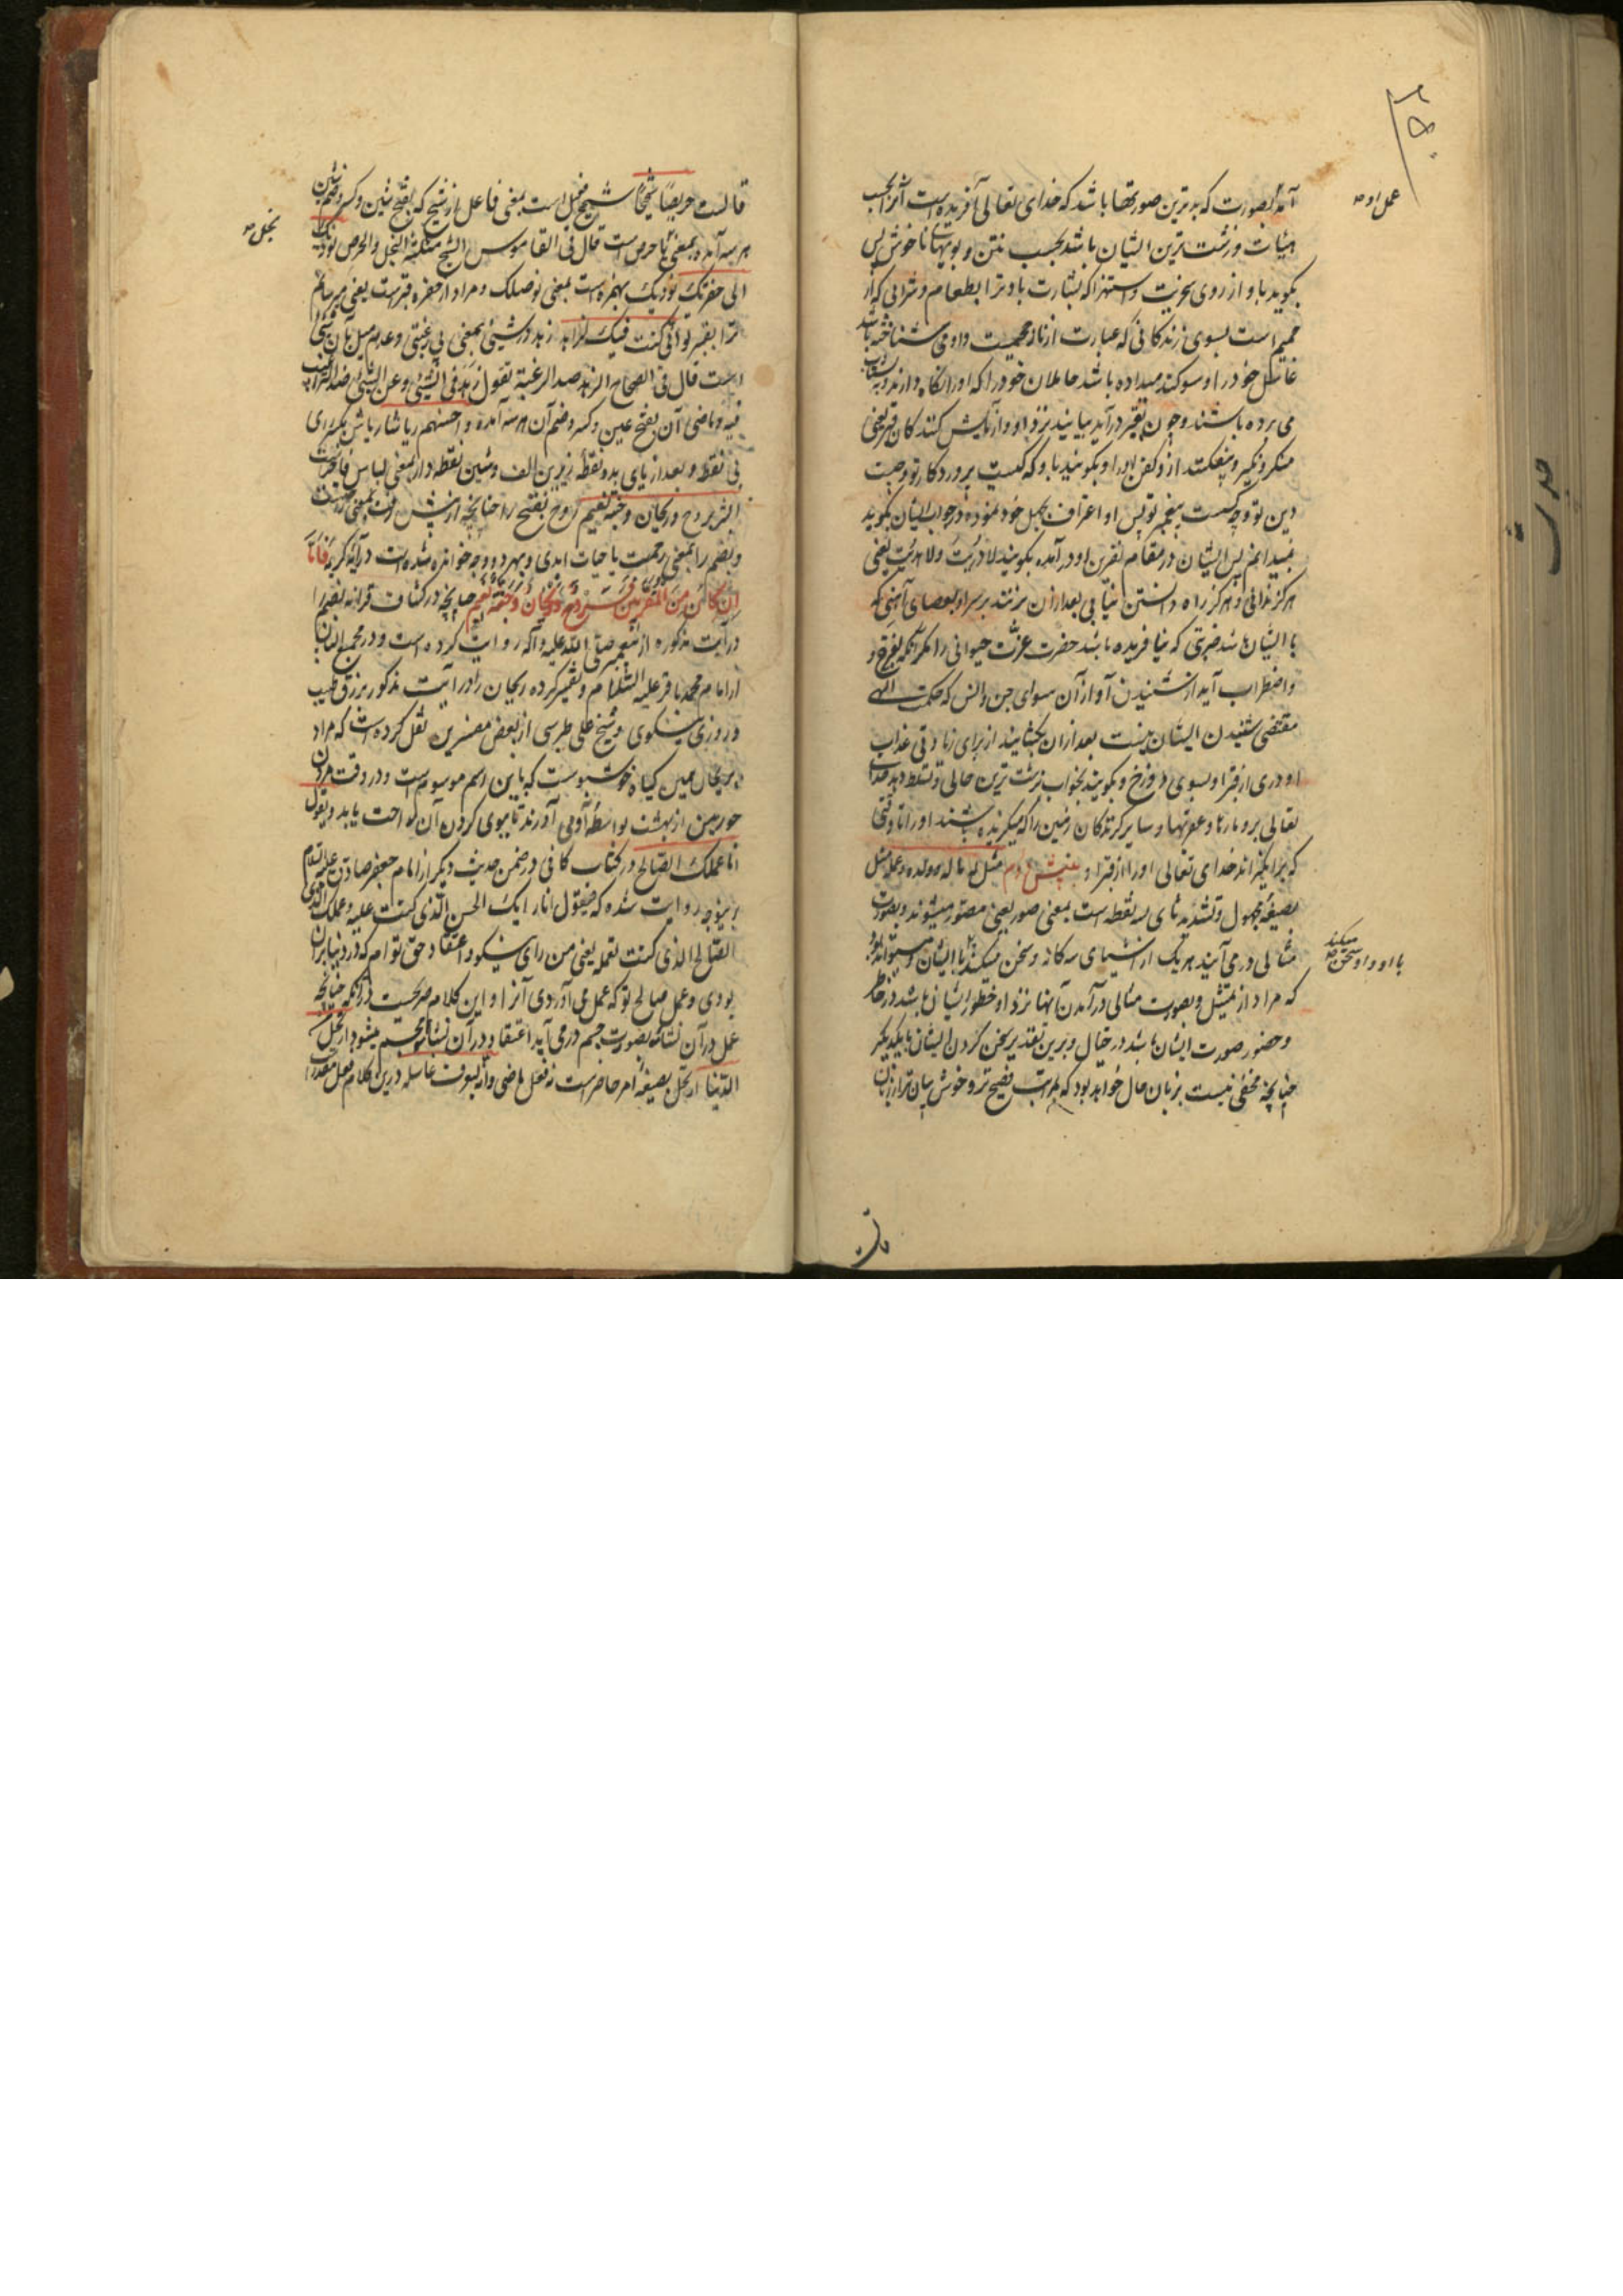 ۲۵۰
عمل او صه
آید بصورت که بدترین صورتها باشد که خدای تعالی آفریده است آنرا بحسب
هیئات و زشت ترین ایشان باشد بحسب نتن و بویهای ناخوش پس
بگوید باو از روی سخریت و استهزا که بشارت باد ترا بطعام و شرابی که از
حمیم است بسوی زندگانی که عبارت از نار جحیمست و او می شناخته باشد
غاسل خود را و سوکند میداده باشد حاملان خود را که او را نگاه دارند و بشتاب
می برده باشند و چون بقبر درآید بیایند نزد او دو آزمایش کنندگان قبر یعنی
منکر و نکیر و بیفکنند از و کفن او را و بگویند باو که کیست پروردگار تو و چیست
دین تو و چه کسست پیغمبر تو پس او اعتراف بجهل خود نموده در جواب ایشان بگوید
نمیدانم پس ایشان در مقام نفرین او درآمده بگویند لا دریت ولا هدیت یعنی
هرگز ندانی و هرگز راه دانستن نیابی بعد از آن بزنند بر سر او بعصای آهنی که
با ایشان باشد ضربتی که نیافریده باشد حضرت عزت حیوانی را مگر آنکه بفزع و
واضطراب آید از شنیدن آواز آن سوای جن و انس که حکمت الهی
مقتضی شنیدن ایشان نیست بعد از آن بگشایند از برای زیادتی عذاب
او دری از قبر او بسوی دوزخ و بگویند بخواب بزشت ترین حالی و تسلط دهد خدای
تعالی برو مارها و عقربها و سایر گزندگان زمین را که میگزیده باشند او را تا وقتی
که برانگیزاند خدای تعالی او را از قبر او بینش دوم مثل له ماله و ولده و عمله مثل
بصیغه مجهول و تشدید ثای سه نقطه است بمعنی صور یعنی مصور میشوند و بصورت
مثالی در می آیند هر یک از اشیای سه کانه و سخن میکند با ایشان و میتواند بود
با او و او سخن میکند صه
که مراد از تمثیل و بصورت مثالی درآمدن آنها نزد او خطور ایشان باشد در خاطر
و حضور صورت ایشان باشد در خیال و برین تقدیر سخن کردن ایشان با یکدیگر
چنانچه مخفی نیست بزبان حال خواهد بود که بمراتب فصیح تر و خوش بیان تر از زبان
قالست حریصا شحیحا شحیح بخیل است بمعنی فاعل از شح که بفتح شین و کسر و ضم شین
بخل صه
هر سه آمده بمعنی با حرص است قال فی القاموس الشح مثلثة البخل والحرص نؤدیک
الی حفرتک نؤدیک بهمزه است بمعنی نوصلک و مراد از حفره قبرست یعنی میرسانم
ترا بقبر تو انی کنت فیک لزاهد زهد در شیئ بمعنی بی رغبتی و عدم میل بآن شئ
است قال فی الصحاح الزهد ضد الرغبة تقول زهد فی الشیئ و عن الشیئ
فیه و ماضی آن بفتح عین و کسر و ضم آن هر سه آمده و احسنهم ریاشا ریاش بکسر رای
بی نقطه و بعد از یای بدو نقطه زیرین الف و شین نقطه دار بمعنی لباس فاخرست
ابشر بروح و ریحان و جنة نعیم روح بفتح را چنانچه از پیش رفت بمعنی راحتست
و بضم را بمعنی رحمت یا حیات ابدی و بهر دو وجه خوانده شده است در آیه کریمه فَاَمّا
اِنْ کَانَ مِنَ الْمُقَرَّبِینَ فَرَوْحٌ وَرَیْحَانٌ وَجَنَّةُ نَعِیمٍ چنانچه در کشاف قرائت بضم را
در آیت مذکوره از پیغمبر صلی الله علیه و آله روایت کرده است و در مجمع البیان
از امام محمد باقر علیه السلام و تفسیر کرده ریحان را در آیت مذکور برزق طیب
و روزی نیکوی و شیخ علی طبرسی از بعض مفسرین نقل کرده است که مراد
بریحان همین گیاه خوشبوست که باین اسم موسوم است و در وقت مردن
حور عین از بهشت بواسطه او می آورند تا ببوی کردن آن راحت یابد و یقول
انا عملک الصالح در کتاب کافی در ضمن حدیث دیگر از امام جعفر صادق علیه السلام
برینوجه روایت شده که فیقول انا رایک الحسن الذی کنت علیه و عملک
الصالح الذی کنت تعمله یعنی من رای نیکو و اعتقاد حق توام که در دنیا بران
بودی و عمل صالح تو که عمل می آوردی آنرا و این کلام صریحست در آنکه چنانچه
عمل در آن نشأة بصورت جسم در می آید اعتقاد در آن نشأة مجسم میشود ارتحل
الدنیا ارتحل بصیغه امر حاضر است نه فعل ماضی